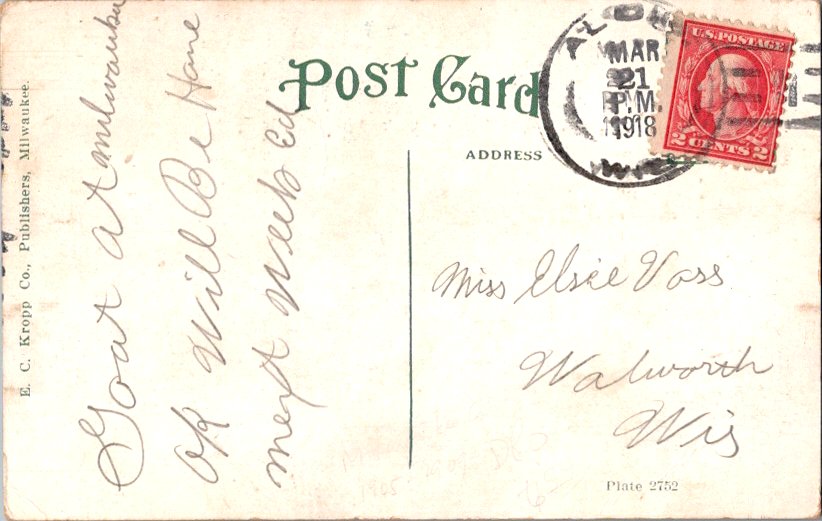 Post Card
ADDRESS
MAR
21
P.M.
1918
U.S. POSTAGE
2 CENTS 2
Goat at milwauku
ok Will Be Hane
mext Week Ed
Miss Elsie Voss
Walworth
Wis
E. C. Kropp Co., Publishers, Milwaukee.
Plate 2752